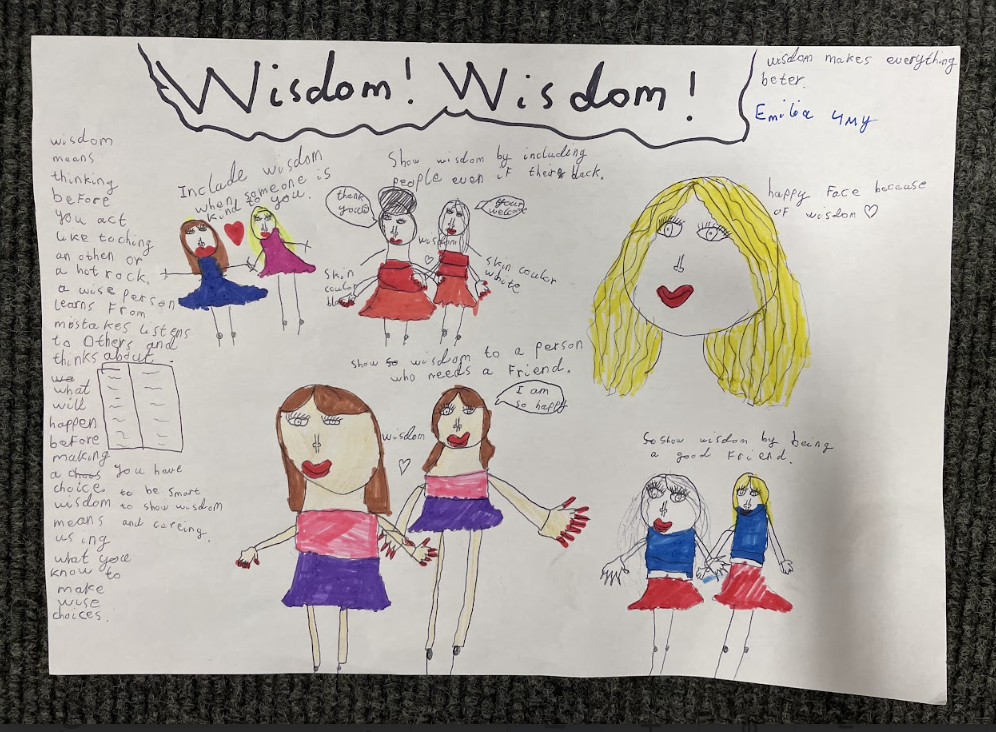 Wisdom! Wisdom!
wisdom makes everything
beter.
Emilia 4My
wisdom
means
thinking
before
you act
like toching
an othen or
a hot rock.
a wise person
learns from
mistakes listens
to others and
thinks about
we
what
will
happen
before
making
a choos you have
choice. to be smart
wisdom to show wisdom
means and careing.
us ing
what you
know to
make
wise
choices.
Include wisdom
when someone is
kind to you.
Show wisdom by including
people even if their black.
thank
you
your
welcome
wisdom
skin
coulor
skin coulor
white
happy face because
of wisdom ♡
show so wisdom to a person
who needs a friend.
I am
so happy
wisdom
So show wisdom by being
a good friend.